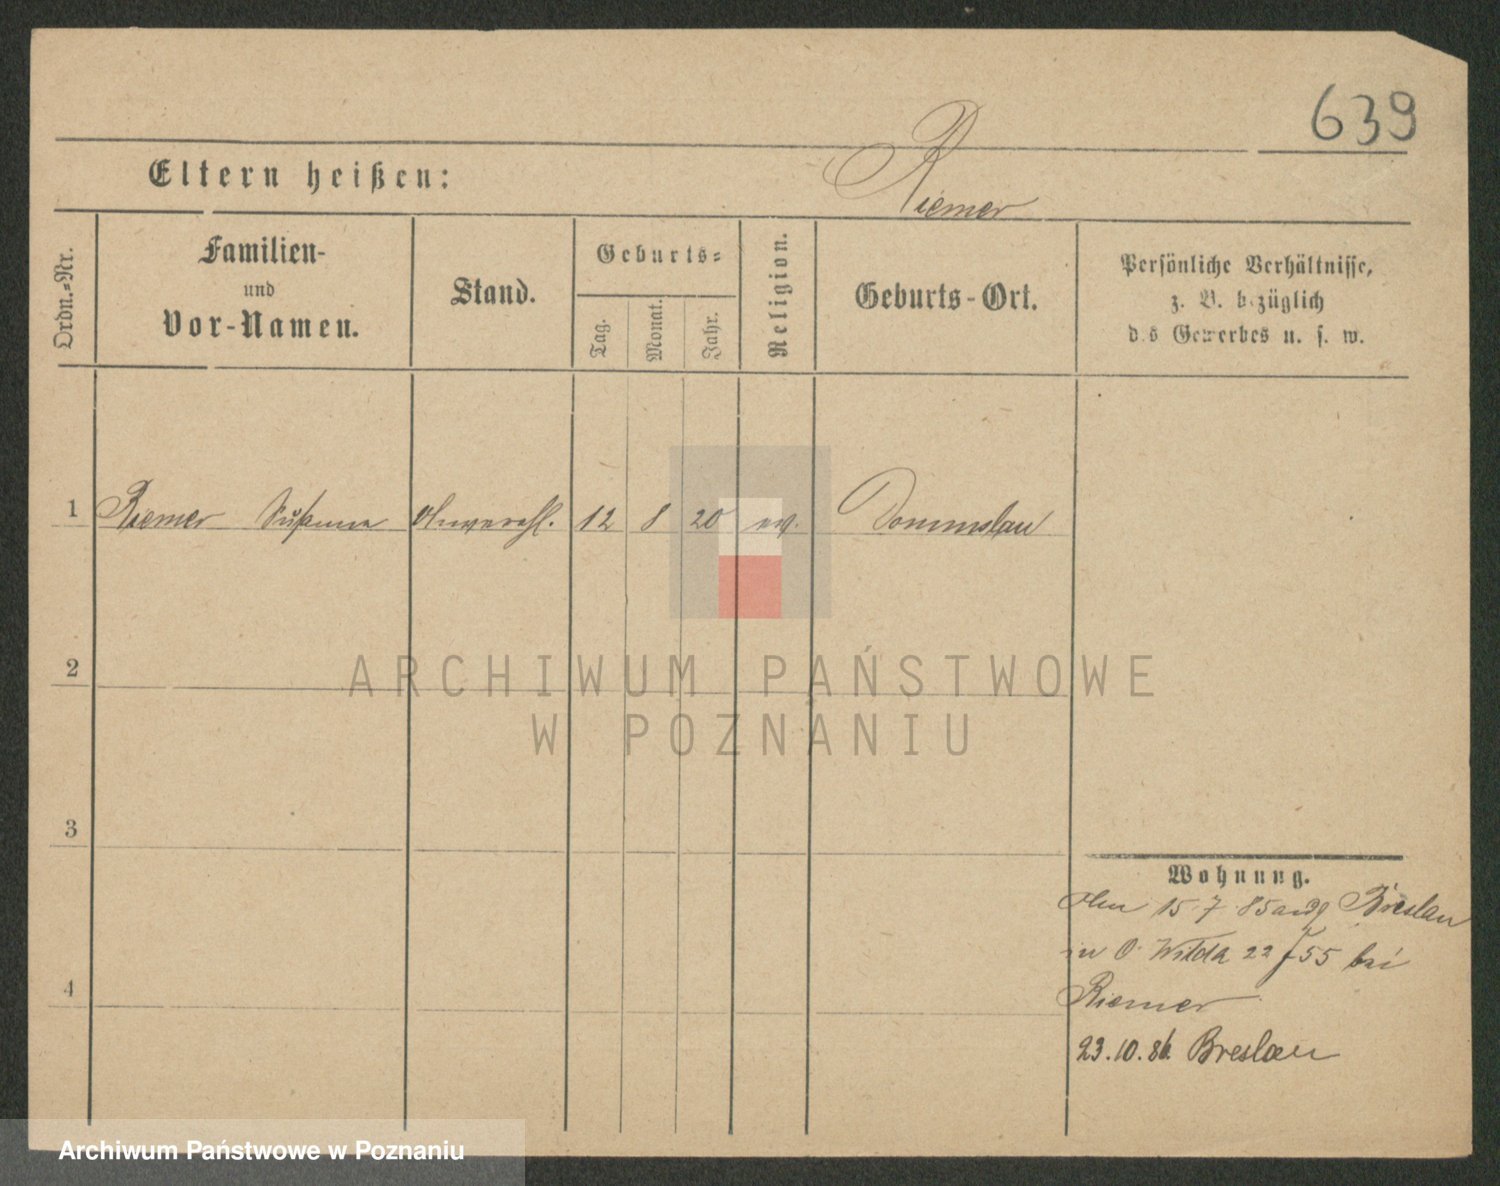 639
Eltern heißen:
Riemer
Ordn.-Nr.
Familien-
und
Vor-Namen.
Stand.
Geburts-
Tag.
Monat.
Jahr.
Religion.
Geburts-Ort.
Persönliche Verhältnisse,
z. B. bezüglich
des Gewerbes u. s. w.
1 Riemer Susanna 12 8 20 ev. Dommslau
2
3
4
Wohnung.
15 7 85 Breslau
in O. Wilda 22 55 bei
Riemer
23.10.86. Breslau
ARCHIWUM PAŃSTWOWE
W POZNANIU
Archiwum Państwowe w Poznaniu